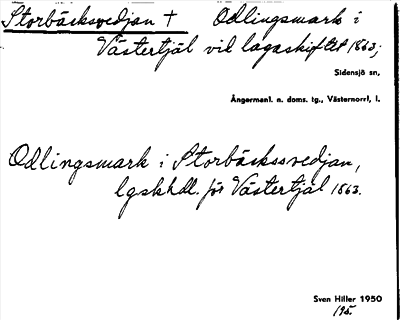 Storbäcksvedjan † Odlingsmark i
Västertjäl vid lagaskiftet 1863;
Sidensjö sn,
Ångermanl. n. doms. tg., Västernorrl. l.
Odlingsmark i Storbäckssvedjan,
lgskhdl. för Västertjäl 1863.
Sven Hiller 1950